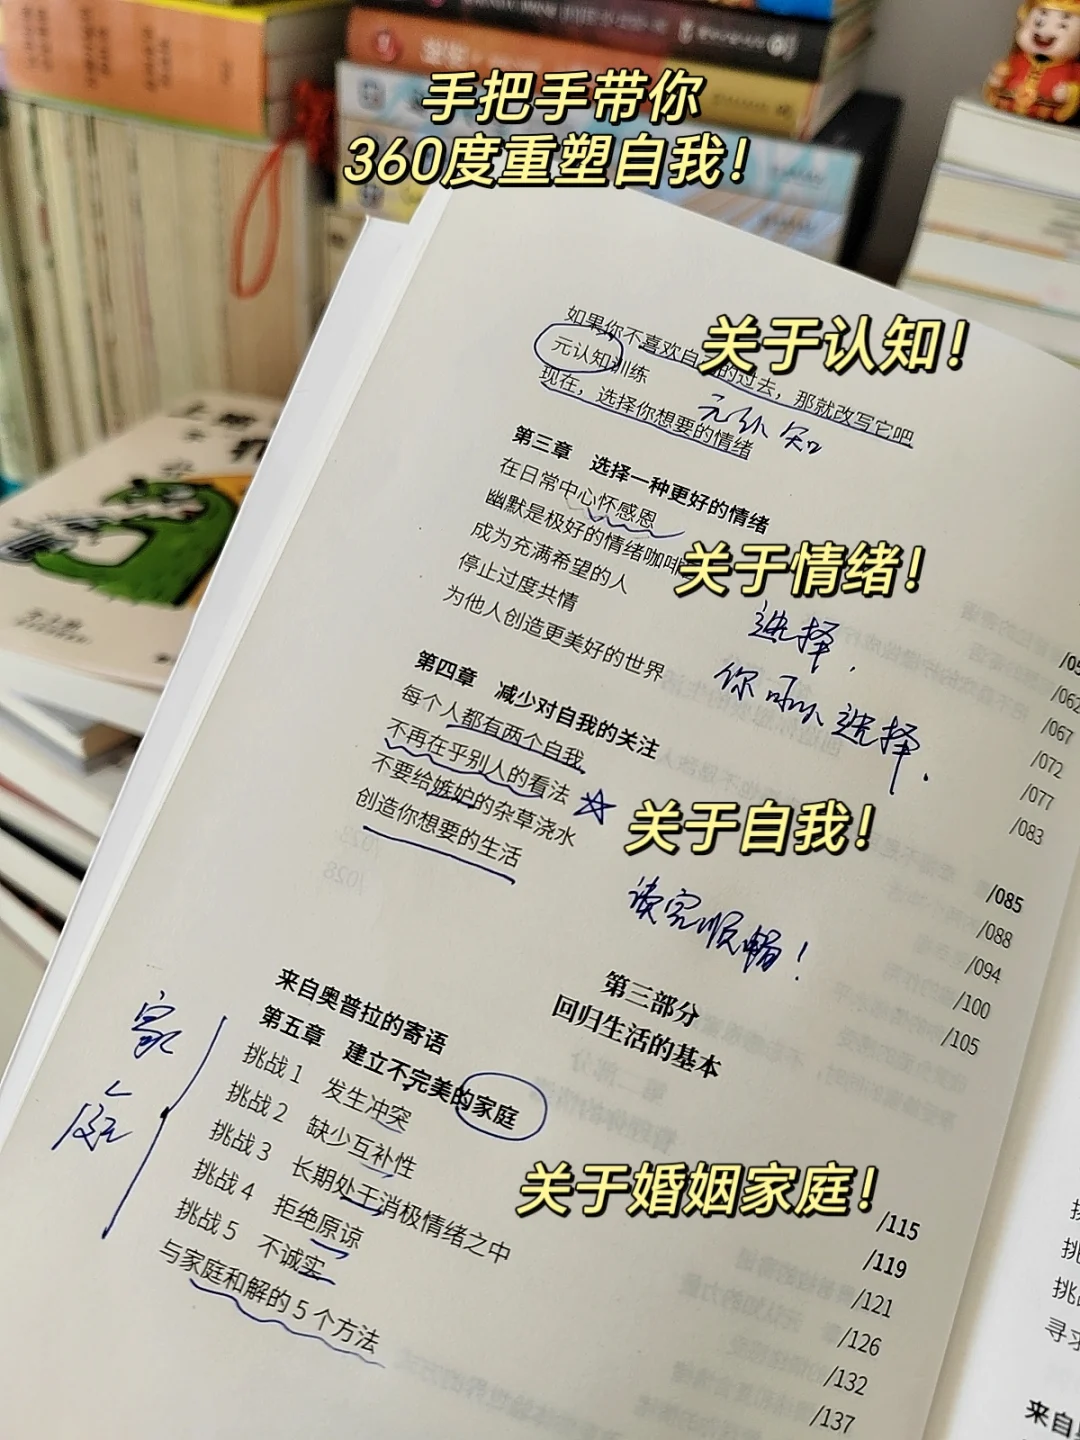 手把手带你
360度重塑自我！
如果你不喜欢自己的过去，那就改写它吧
关于认知！
元认知训练
元认知
现在，选择你想要的情绪
第三章 选择一种更好的情绪
在日常中心怀感恩
幽默是极好的情绪咖啡
关于情绪！
成为充满希望的人
停止过度共情
为他人创造更美好的世界
选择，
你可以选择.
/062
/067
/072
/077
/083
第四章 减少对自我的关注
每个人都有两个自我
不再在乎别人的看法
不要给嫉妒的杂草浇水
创造你想要的生活
关于自我！
读完顺畅！
/085
/088
/094
/100
/105
第三部分
回归生活的基本
来自奥普拉的寄语
第五章 建立不完美的家庭
家庭
挑战 1 发生冲突
挑战 2 缺少互补性
挑战 3 长期处于消极情绪之中
挑战 4 拒绝原谅
挑战 5 不诚实
与家庭和解的 5 个方法
关于婚姻家庭！
/115
/119
/121
/126
/132
/137
寻求
来自